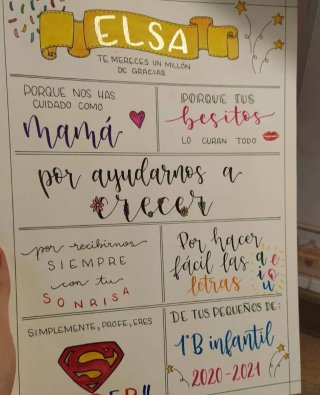 ELSA
TE MERECES UN MILLÓN
DE GRACIAS
PORQUE NOS HAS
CUIDADO COMO
mamá
¡PORQUE TUS
besitos
LO CURAN TODO
por ayudarnos a
crecer
por recibirnos
SIEMPRE
con tu
SONRISA
Por hacer
fácil las
letras
a e
i o u
SIMPLEMENTE, PROFE, ERES
S
DE TUS PEQUEÑOS DE:
1ºB infantil
2020-2021